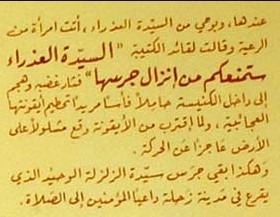 عندها، وبوحي من السيّدة العذراء، أتت امرأة من
الرعية وقالت لقائد الكتيبة "السيّدة العذراء
ستمنعكم من إنزال جرسها" فثار غضبه وهجم
إلى داخل الكنيسة حاملاً فأساً مريداً تحطيم أيقونتها
العجائبية، ولما إقترب من الأيقونة وقع مشلولاً على
الأرض عاجزاً عن الحركة.
وهكذا بقي جرس سيّدة الزلزلة الوحيد الذي
يقرع في مدينة زحلة داعياً المؤمنين إلى الصلاة.